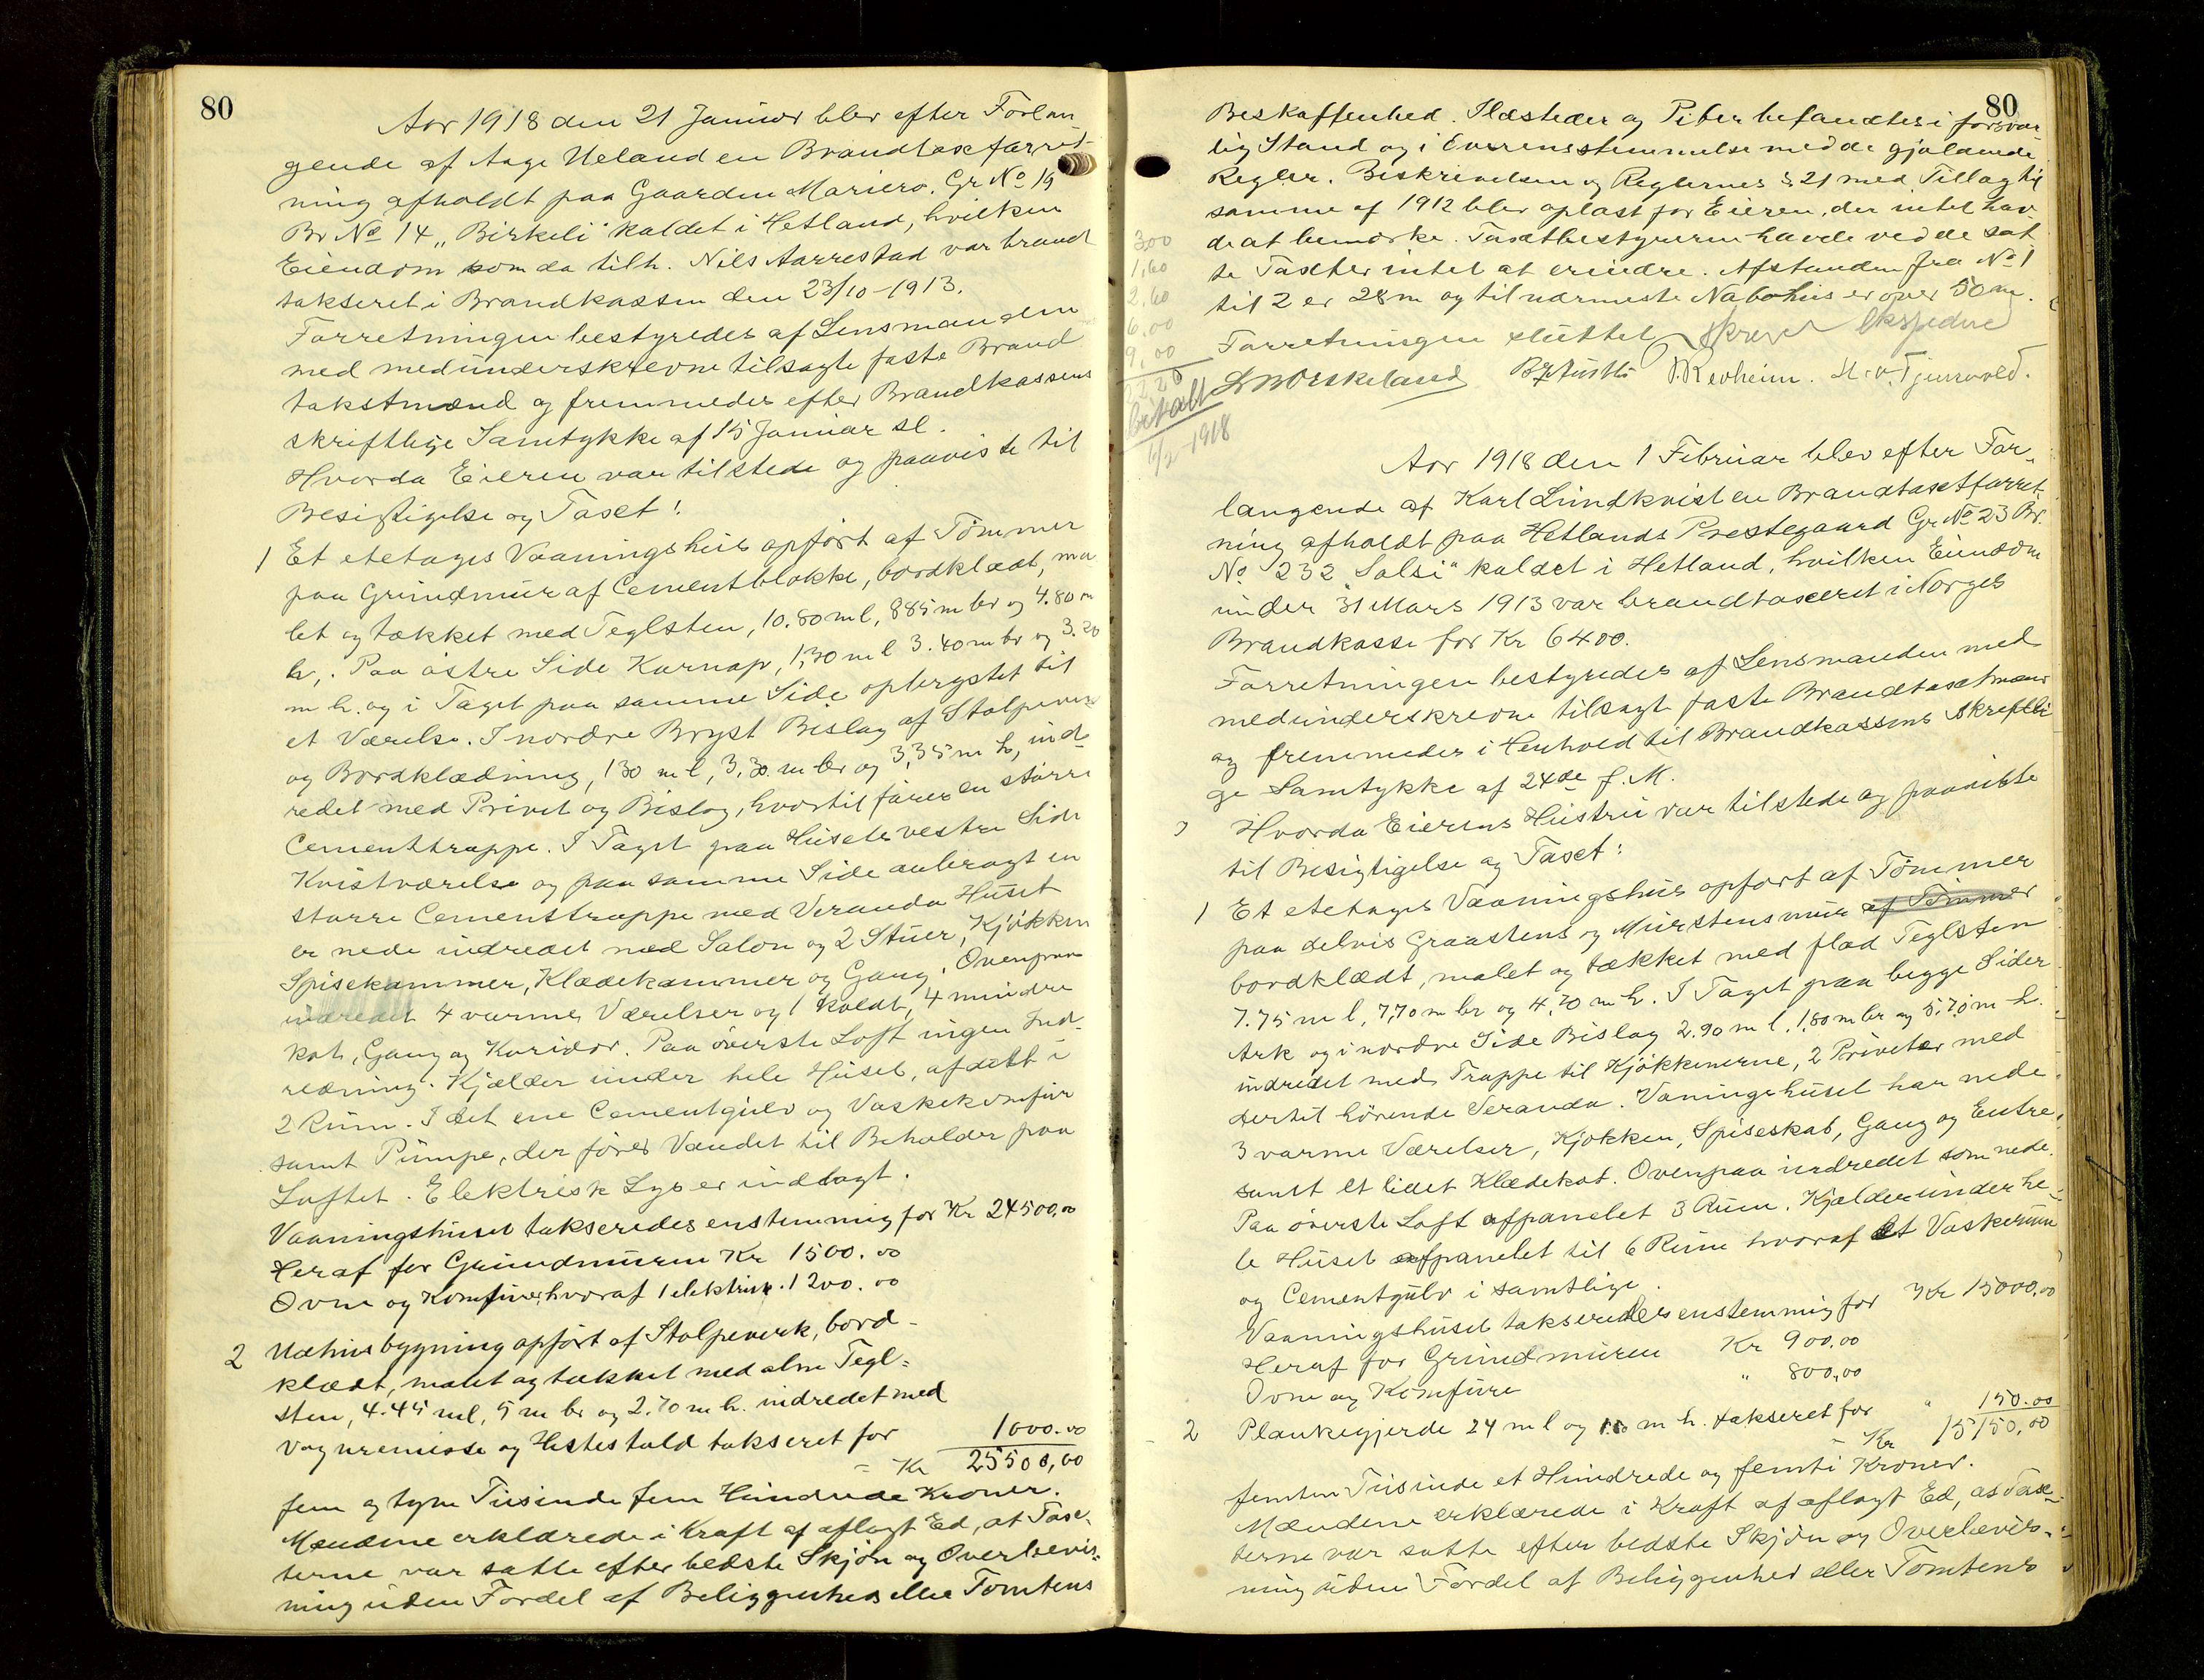 80
Aar 1918 den 21 Januar blev efter Forlan-
gende af Aage Ueland en Brandtaxtforret-
ning afholdt paa Gaarden Mariero. Gr No 19
Br No 14 „Birkeli" kaldet i Hetland, hvilken
Eiendom som da tilh. Nils Aarrestad var brand
takseret i Brandkassen den 23/10-1913.
Forretningen bestyredes af Lensmanden
med medunderskrevne tilsagte faste Brand
takstmænd og fremmedes efter Brandkassens
skriftlige Samtykke af 15 Januar sl.
Hvorda Eieren var tilstede og paaviste til
Besigtigelse og Taxt:
1 Et etetages Vaaningshus opført af Tømmer
paa Grundmur af Cementblokke, bordklædt, ma
let og tækket med Teglsten, 10.80 m l, 885 m br og 4.80 m
h,. Paa østre Side Karnap, 1,30 m l 3.40 m br og 3.20
m h. og i Taget paa samme Side opbrystet til
et Værelse. I nordre Bryst Bislag af Stolpeverk
og Bordklædning, 130 m l, 3,30 m br og 3,35 m h, ind-
redet med Privet og Bislag, hvortil fører en større
Cementtrappe. I Taget paa Husets vestre Side
Kvistværelse og paa samme Side anbragt en
større Cementtrappe med Veranda Huset
er nede indredet med Salon og 2 Stuer, Kjøkken
Spisekammer, Klædekammer og Gang. Ovenpaa
indredet 4 varme Værelser og 1 koldt, 4 mindre
kot, Gang og Koridor. Paa øverste Loft ingen Ind-
redning. Kjælder under hele Huset, afdelt i
2 Rum. I det ene Cementgulv og Vaskekomfur
samt Pumpe, der fører Vandet til Beholder paa
Loftet. Elektrisk Lys er inddagt.
Vaaningshuset takseredes enstemmig for Kr 24500,00
Heraf for Grundmuren Kr 1500.00
Ovne og Komfurer hvoraf 1 elektrisk. 1200.00
2 Udhusbygning opført af Stolpeverk, bord-
klædt, malet og tækket med alm Tegl=
sten, 4.45 ml, 5 m br og 2.70 m h. indredet med
Vognremisse og Hestestald takseret for 1000.00
= Kr 25500,00
fem og tyve Tusinde fem Hundrede Kroner.
Mændene erklærede i Kraft af aflagt Ed, at Tax-
terne var satte efter bedste Skjøn og Overbevis-
ning uden Fordel af Beliggenhed eller Tomtens
80
Beskaffenhed. Ildsteder og Piber befandtes i forsvar
lig Stand og i Overensstemmelse med de gjældende
Regler. Beskrivelsen og Reglernes § 21 med Tillæg til
samme af 1912 blev oplæst for Eieren, der intet hav-
de at bemærke. Taxtbestyreren havde ved de sat
te Taxter intet at erindre. Afstanden fra No 1
til 2 er 28 m og til nærmeste Nabohus er over 50 m.
Forretningen sluttet skrevet ekspedere
3.00
1,60
2,60
6.00
9,00
22.20
betalt
6/2-1918
Aar 1918 den 1 Februar blev efter For-
langende af Karl Lundkvist en Brandtaxtforret-
ning afholdt paa Hetlands Prestegaard Gr No 23 Br.
No 232 „Solsi" kaldet i Hetland, hvilken Eiendom
under 31 Mars 1913 var brandtaxeret i Norges
Brandkasse for Kr 6400.
Forretningen bestyredes af Lensmanden med
medunderskrevne tilsagte faste Brandtaxtmænd
og fremmedes i Henhold til Brandkassens skriftli
ge Samtykke af 24de f. M.
Hvorda Eierens Hustru var tilstede og paaviste
til Besigtigelse og Taxt:
1 Et etetages Vaaningshus opført af Tømmer
paa delvis Graastens og Murstensmur af Tømmer
bordklædt, malet og tækket med flad Teglsten
7.75 m l, 7,70 m br og 4,70 m h. I Taget paa begge Sider
Ark og i nordre Side Bislag 2.90 m l, 1,80 m br og 5,70 m h.
indredet med Trappe til Kjøkkenerne, 2 Priveter med
dertil hørende Veranda. Vaningshuset har nede
3 varme Værelser, Kjøkken, Spiseskab, Gang og Entre,
samt et lidet Klædekot. Ovenpaa indredet som nede.
Paa øverste Loft afpanelet 3 Rum. Kjælder under he-
le Huset afpanelet til 6 Rum hvoraf et Vaskerum
og Cementgulv i samtlige.
Vaaningshuset takseredes enstemmig for Kr 15000.00
Heraf for Grundmuren Kr 900,00
Ovne og Komfure " 800,00
2 Plankegjerde 24 m l og m h. takseret for " 150.00
= Kr 15150,00
femten Tusinde et Hundrede og femti Kroner.
Mændene erklærede i Kraft af aflagt Ed, at Tax-
terne var satte efter bedste Skjøn og Overbevis-
ning uden Fordel af Beliggenhed eller Tomtens